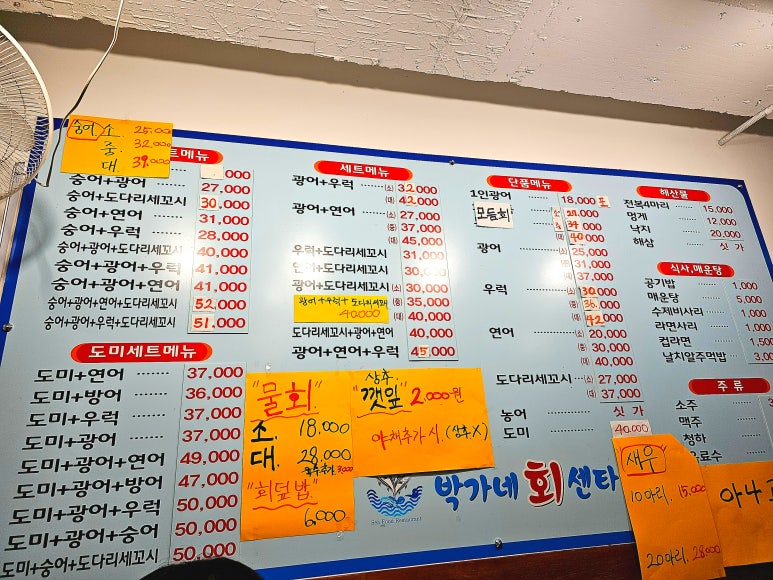 숭어 소. 25.000
중. 32.000
대. 39.000
트메뉴
숭어+광어 ,000
숭어+도다리세꼬시 27,000
숭어+연어 30.000
숭어+우럭 31,000
28.000
숭어+광어+도다리세꼬시 40.000
숭어+광어+우럭 41,000
숭어+광어+연어 41.000
숭어+광어+연어+도다리세꼬시 52.000
숭어+광어+우럭+도다리세꼬시 51.000
도미세트메뉴
도미+연어 37,000
도미+방어 36,000
도미+우럭 37,000
도미+광어 37,000
도미+광어+연어 49,000
도미+광어+방어 47,000
도미+광어+우럭 50,000
도미+광어+숭어 50,000
도미+숭어+도다리세꼬시 50,000
세트메뉴
광어+우럭 (소) 32,000
(대) 42,000
광어+연어 (소) 27,000
(중) 37,000
(대) 45,000
우럭+도다리세꼬시 31,000
연어+도다리세꼬시 30,000
광어+도다리세꼬시 (소) 30,000
광어+우럭+도다리세꼬시 40.000
(중) 35,000
(대) 40,000
도다리세꼬시+광어+연어 40,000
광어+연어+우럭 45,000
"물회"
소. 18.000
대. 28.000
3,000
"회덮밥"
6.000
상추.
깻잎 2.000원
야채추가시. (상추X)
단품메뉴
1인광어 18,000
모듬회 28.000
34.000
(대) 40.000
광어 (소) 25,000
(중) 31,000
(대) 37,000
우럭 (소) 30.000
(중) 36.000
(대) 42.000
연어 (소) 20,000
(중) 30,000
(대) 40,000
도다리세꼬시 (소) 27,000
(대) 37,000
농어 싯 가
도미 40.000
해산물
전복4마리 15,000
멍게 12,000
낙지 20,000
해삼 싯 가
식사,매운탕
공기밥 1,000
매운탕 5,000
수제비사리 1,000
라면사리 1,000
컵라면 1,500
날치알주먹밥 3,00
주 류
소주
맥주
청하
료수
새우
10마리. 15.000
20마리. 28.000
아나고
박가네 회 센타
Sea Food Restaurant